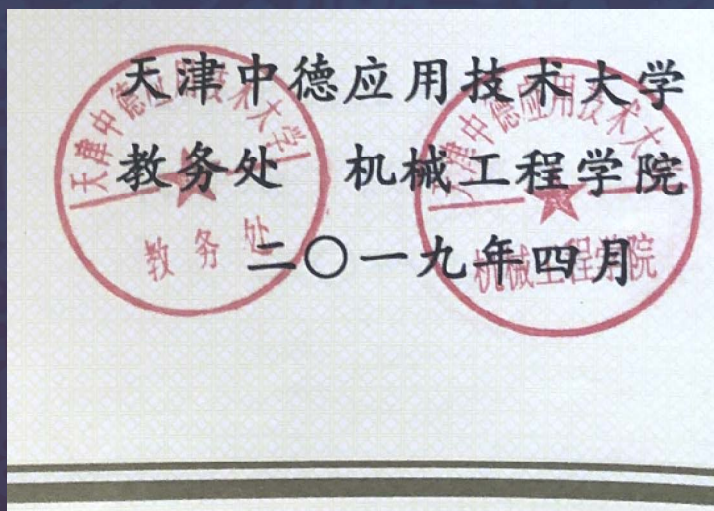 天津中德应用技术大学
教务处 机械工程学院
二〇一九年四月
天津中德应用技术大学
教务处
天津中德应用技术大学
机械工程学院